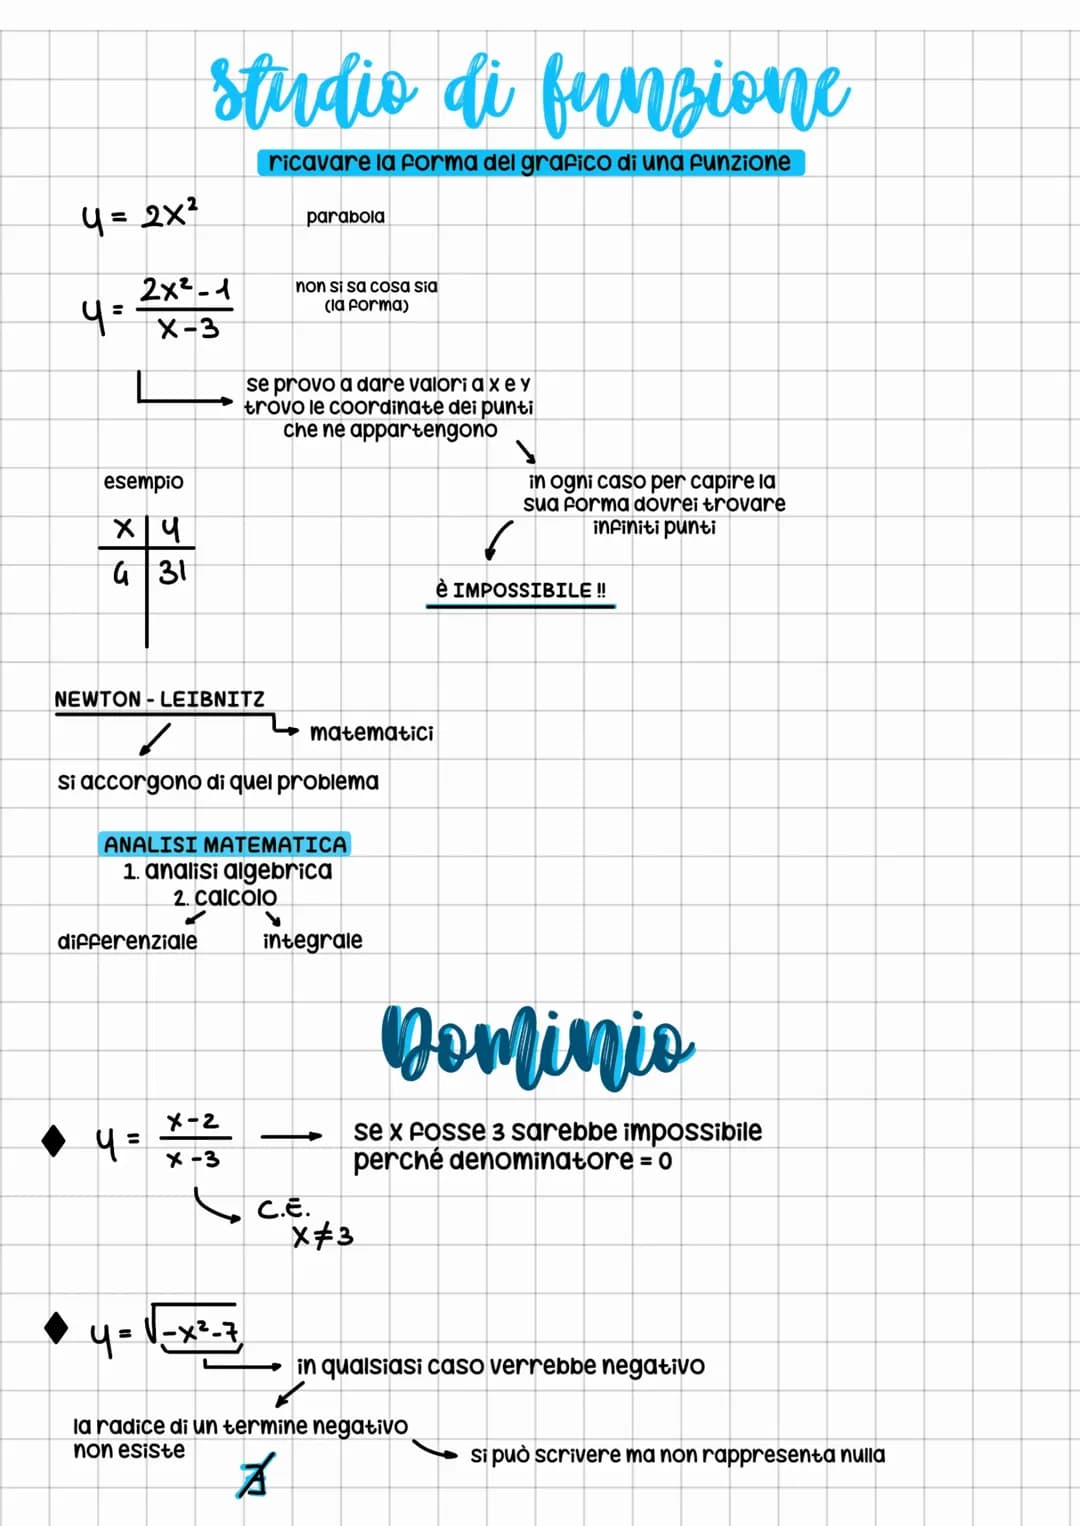 studio di funzione
ricavare la forma del grafico di una funzione
y = 2x²
parabola
y = (2x²-1)/(x-3)
non si sa cosa sia
(la forma)
se provo a dare valori a x e y
trovo le coordinate dei punti
che ne appartengono
in ogni caso per capire la
sua forma dovrei trovare
infiniti punti
è IMPOSSIBILE !!
esempio
x | y
4 | 31
NEWTON - LEIBNITZ
matematici
si accorgono di quel problema
ANALISI MATEMATICA
1. analisi algebrica
2. calcolo
differenziale integrale
Dominio
y = (x-2)/(x-3)
se x fosse 3 sarebbe impossibile
perché denominatore = 0
C.E.
x≠3
y = √(-x²-7)
in qualsiasi caso verrebbe negativo
la radice di un termine negativo
non esiste
si può scrivere ma non rappresenta nulla
∄